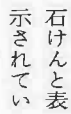 石けんと表
示されてい